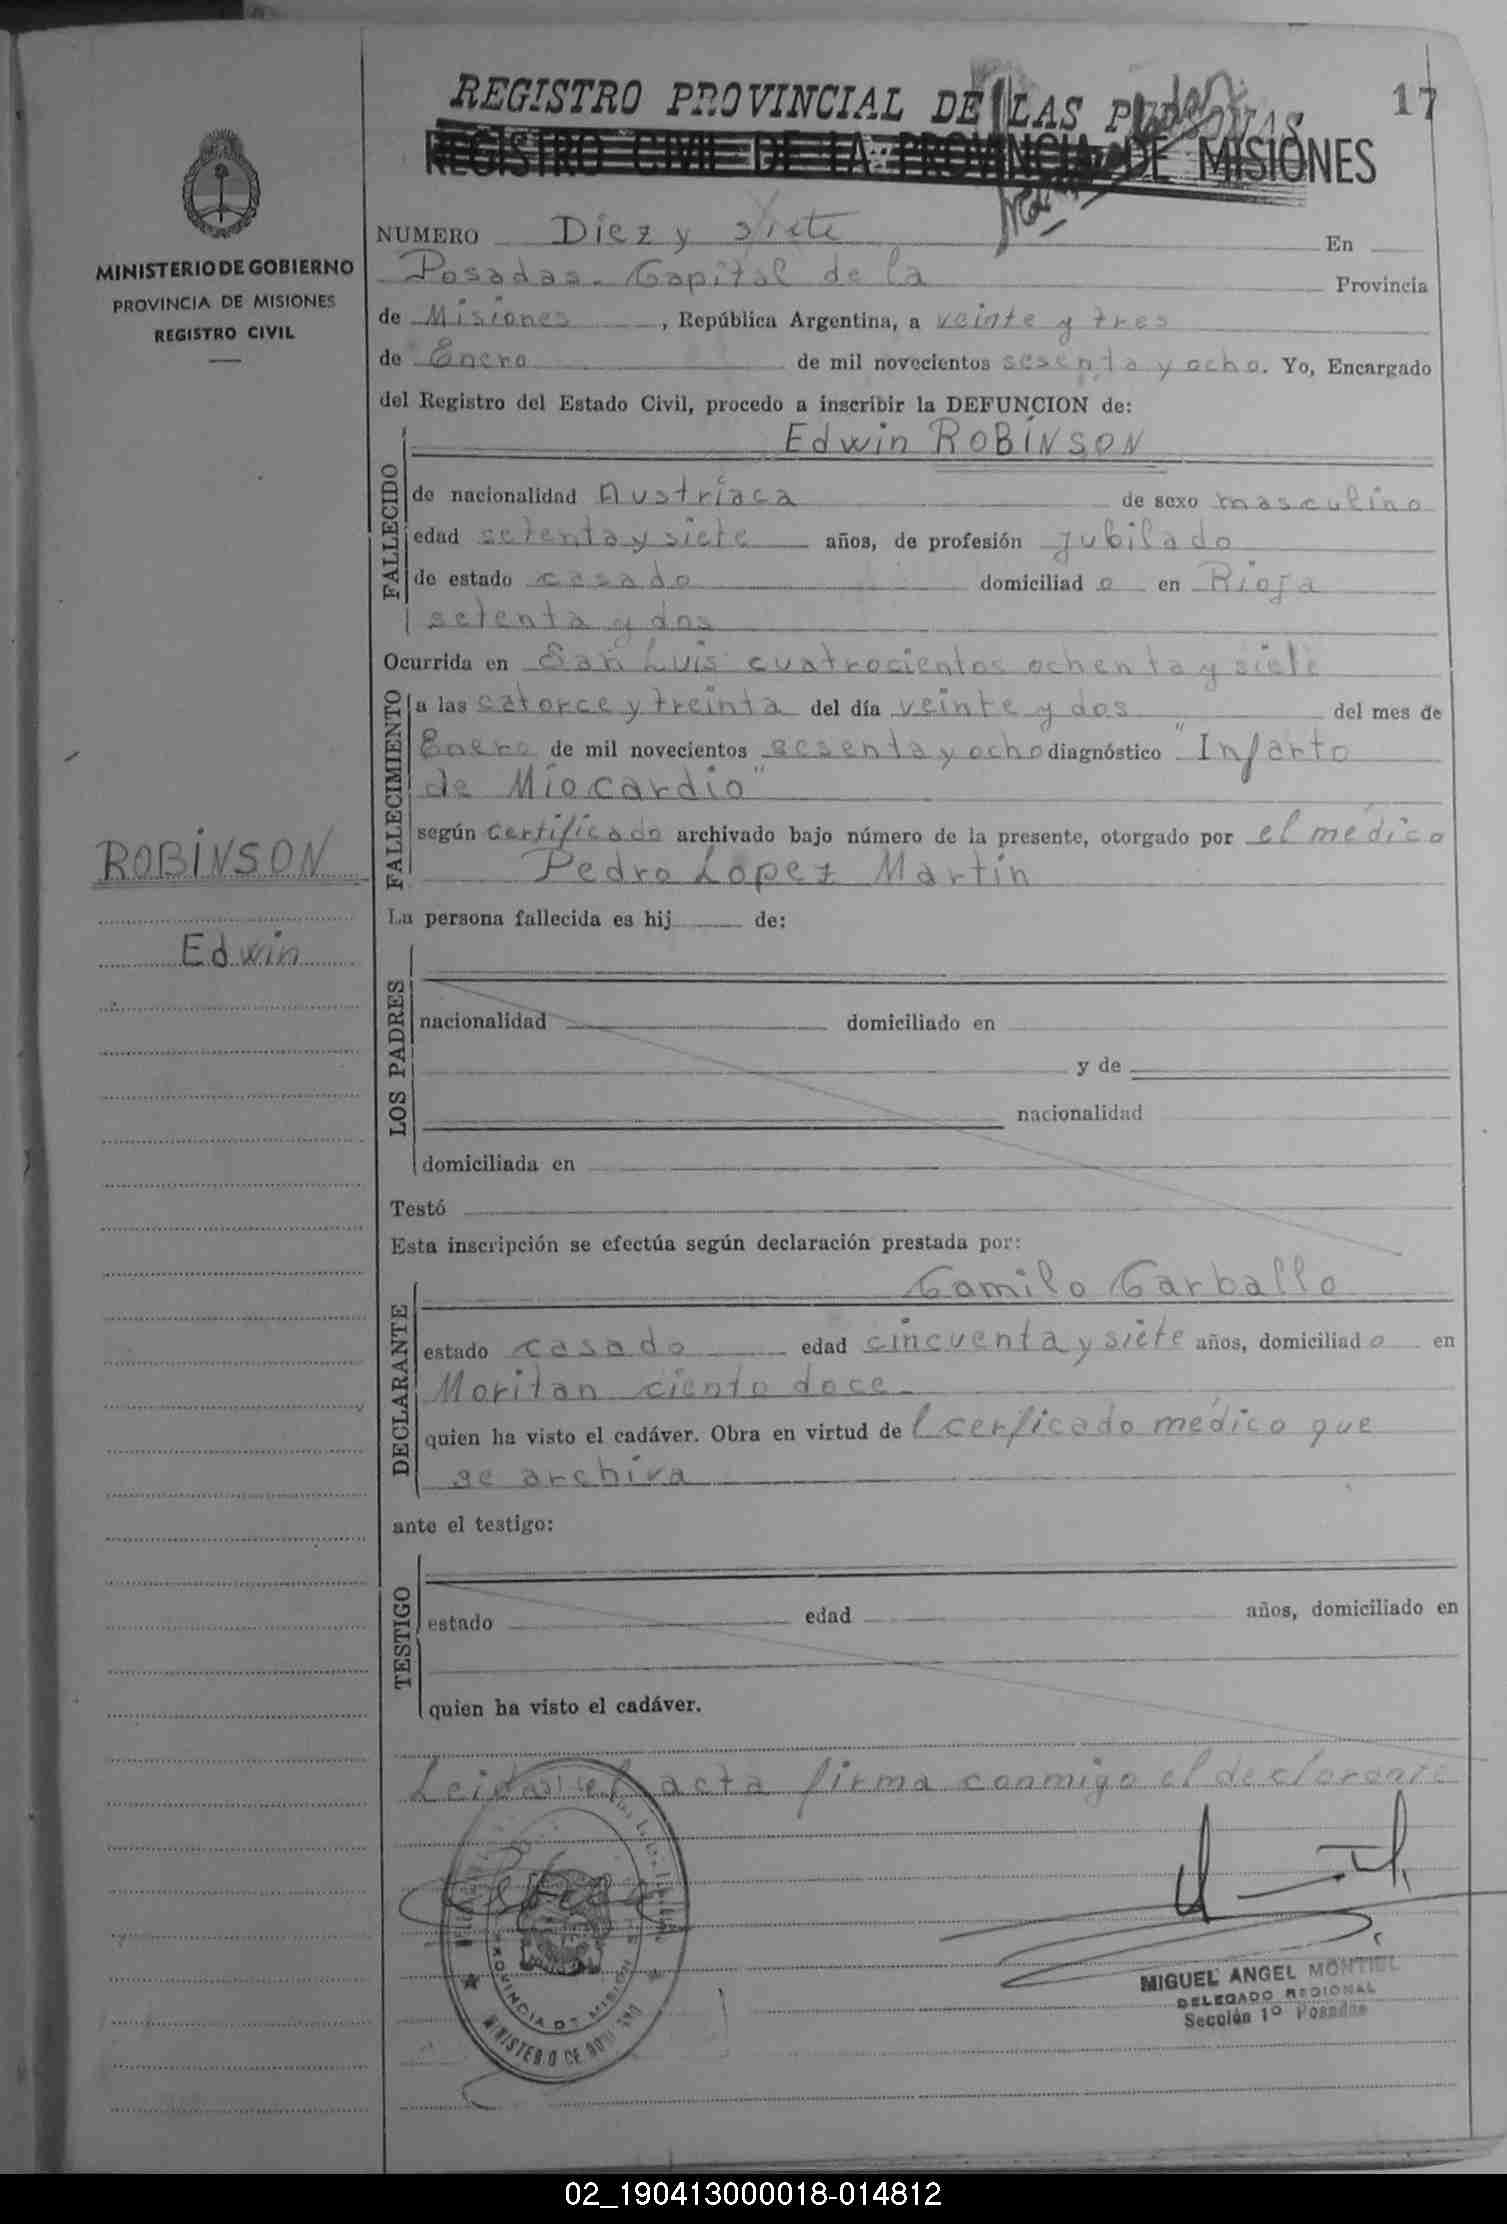 REGISTRO PROVINCIAL DE LAS PERSONAS
17
REGISTRO CIVIL DE LA PROVINCIA DE MISIONES
MINISTERIO DE GOBIERNO
PROVINCIA DE MISIONES
REGISTRO CIVIL
NUMERO Diez y siete En
Posadas - Capital de la Provincia
de Misiones, República Argentina, a veinte y tres
de Enero de mil novecientos sesenta y ocho. Yo, Encargado
del Registro del Estado Civil, procedo a inscribir la DEFUNCION de:
Edwin ROBINSON
FALLECIDO
de nacionalidad Austríaca de sexo masculino
edad setenta y siete años, de profesión jubilado
de estado casado domiciliad o en Rioja
setenta y dos
Ocurrida en San Luis cuatrocientos ochenta y siete
FALLECIMIENTO
a las catorce y treinta del día veinte y dos del mes de
Enero de mil novecientos sesenta y ocho diagnóstico "Infarto
de Miocardio"
según certificado archivado bajo número de la presente, otorgado por el médico
Pedro Lopez Martín
ROBINSON
Edwin
La persona fallecida es hij de:
LOS PADRES
nacionalidad domiciliado en
y de
nacionalidad
domiciliada en
Testó
Esta inscripción se efectúa según declaración prestada por:
Camilo Carballo
DECLARANTE
estado casado edad cincuenta y siete años, domiciliad o en
Moritan ciento doce
quien ha visto el cadáver. Obra en virtud de l cerficado médico que
se archiva
ante el testigo:
TESTIGO
estado edad años, domiciliado en
quien ha visto el cadáver.
Leida el acta firma conmigo el declarante
PROVINCIA DE MISIONES
MINISTERIO DE GOBIERNO
MIGUEL ANGEL MONTIEL
DELEGADO REGIONAL
Sección 1º Posadas
02_190413000018-014812